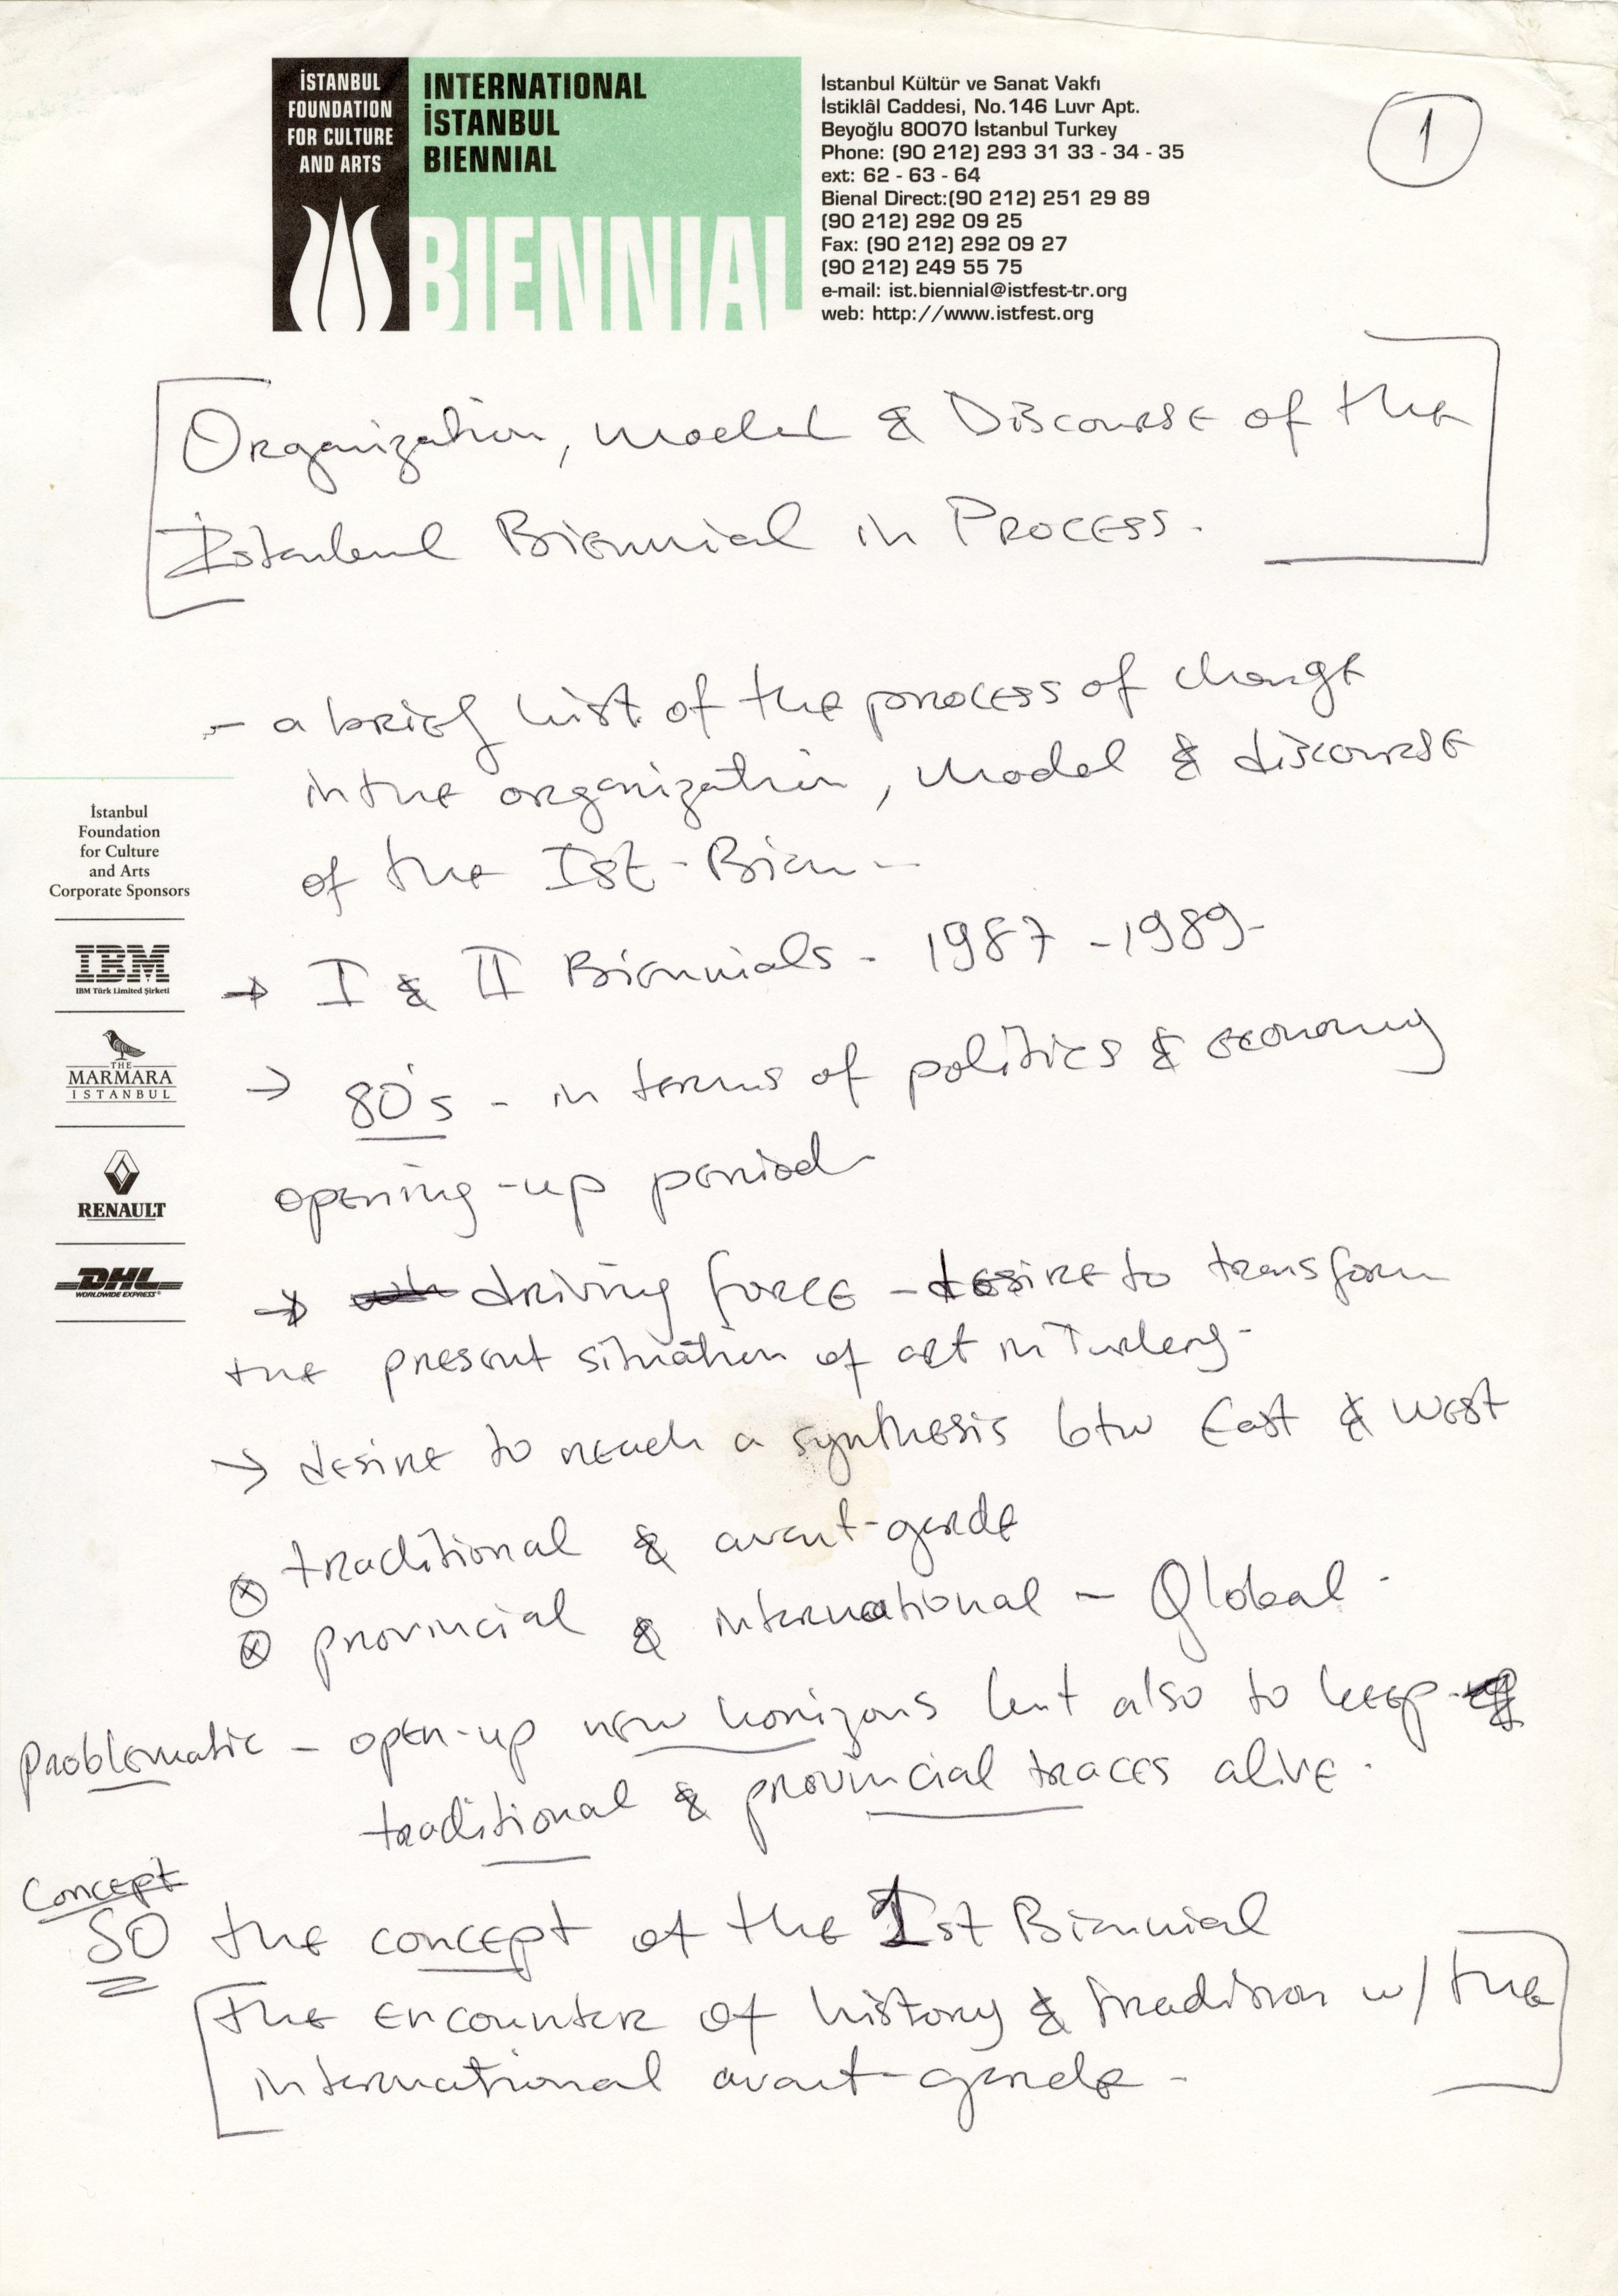 İSTANBUL
FOUNDATION
FOR CULTURE
AND ARTS
INTERNATIONAL
İSTANBUL
BIENNIAL
BIENNIAL
İstanbul Kültür ve Sanat Vakfı
İstiklâl Caddesi, No.146 Luvr Apt.
Beyoğlu 80070 İstanbul Turkey
Phone: (90 212) 293 31 33 - 34 - 35
ext: 62 - 63 - 64
Bienal Direct:(90 212) 251 29 89
(90 212) 292 09 25
Fax: (90 212) 292 09 27
(90 212) 249 55 75
e-mail: ist.biennial@istfest-tr.org
web: http://www.istfest.org
1
Organization, Model & Discourse of the
İstanbul Biennial in Process.
- a brief hist. of the process of change
in the organization, model & discourse
of the Ist - Bien --
→ I & II Biennials - 1987 - 1989-
→ 80's - in terms of politics & economy
opening-up period
→ driving force - desire to transform
the present situation of art in Turkey-
→ desire to reach a synthesis btw East & West
⊗ traditional & avant-garde
⊗ provincial & international - Global -
Problematic - open-up new horizons but also to keep
traditional & provincial traces alive.
Concept
SO the concept of the 1st Biennial
the encounter of history & tradition w/ the
international avant-garde -
İstanbul
Foundation
for Culture
and Arts
Corporate Sponsors
IBM
IBM Türk Limited Şirketi
THE
MARMARA
ISTANBUL
RENAULT
DHL
WORLDWIDE EXPRESS®